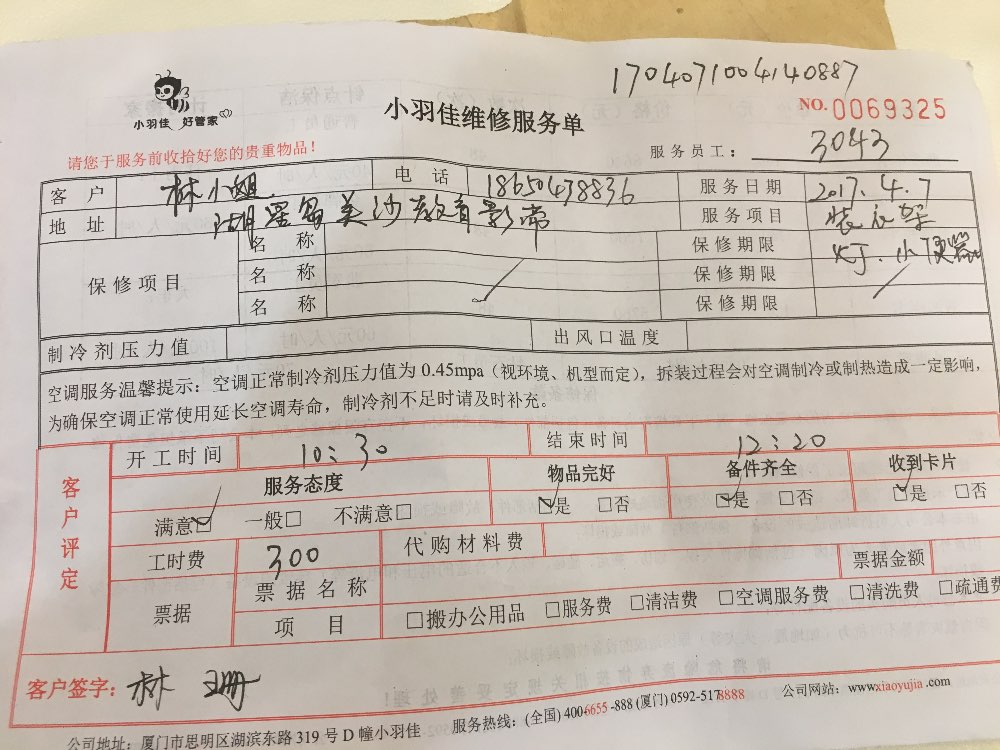 1704071004140887
小羽佳 好管家
小羽佳维修服务单
NO.0069325
请您于服务前收拾好您的贵重物品！
服务员工： 3043
客户 林小姐 电话 18650438836 服务日期 2017.4.7
地址 湖里万达美沙教育影常 服务项目 装衣架
保修项目 名称 保修期限 灯、小便器
名称 保修期限
名称 保修期限
制冷剂压力值 出风口温度
空调服务温馨提示：空调正常制冷剂压力值为 0.45mpa（视环境、机型而定），拆装过程会对空调制冷或制热造成一定影响，
为确保空调正常使用延长空调寿命，制冷剂不足时请及时补充。
客户评定
开工时间 10：30 结束时间 12：20
服务态度 物品完好 备件齐全 收到卡片
满意☑ 一般□ 不满意□ ☑是 □否 ☑是 □否 ☑是 □否
工时费 300 代购材料费
票据 票据名称 票据金额
项目 □搬办公用品 □服务费 □清洁费 □空调服务费 □清洗费 □疏通费
客户签字： 林珊
公司地址：厦门市思明区湖滨东路 319 号 D 幢小羽佳 服务热线：(全国) 400-6655-888 (厦门) 0592-5178888 公司网站：www.xiaoyujia.com